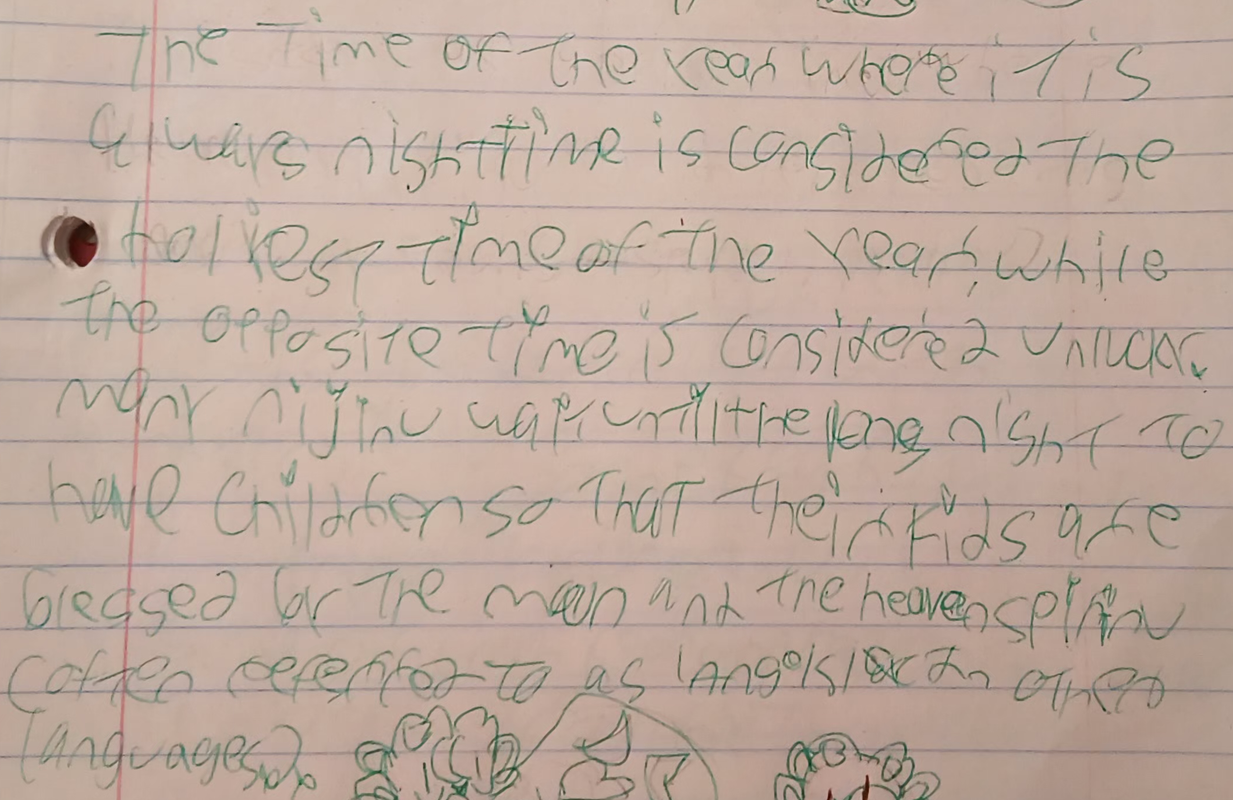 The Time of the year where it is
always nighttime is considered the
holiest time of the year, while
the opposite time is considered unlucky.
many nijinu wait until the long night to
have children so that their kids are
blessed by the moon and the heavenspirinu
(often referred to as "angels" in other
languages).